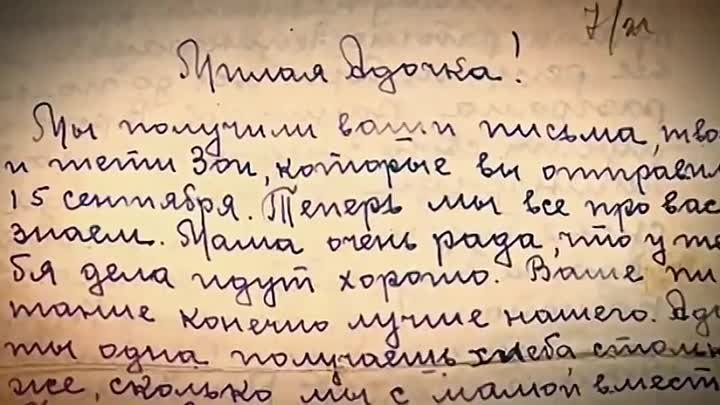 7/XI
Милая Адочка!
Мы получили ваши письма, тво
и тети Зои, которые вы отправил
15 сентября. Теперь мы все про вас
знаем. Мама очень рада, что у те
бя дела идут хорошо. Ваше пи
тание конечно лучше нашего. Адо
ты одна получаешь хлеба столь
же, сколько мы с мамой вмест